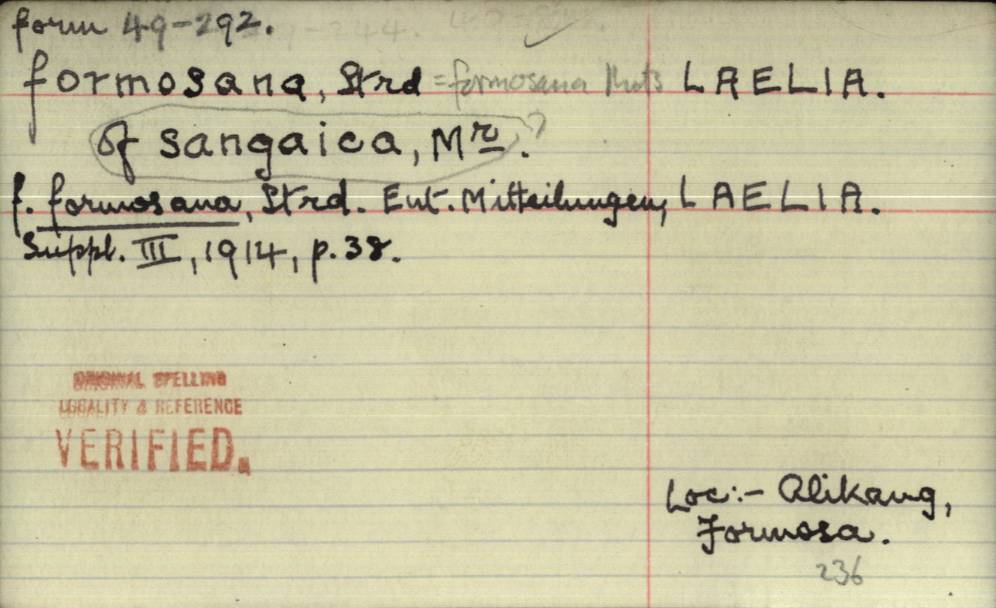 form 49-292.
formosana, Strd = formosana Mats LAELIA.
of sangaica, Mr. ?
f. formosana, Strd. Ent. Mitteilungen, LAELIA.
Suppl. III, 1914, p.38.
ORIGINAL SPELLING
LOCALITY & REFERENCE
VERIFIED.
Loc:- Alikang,
Formosa.
236